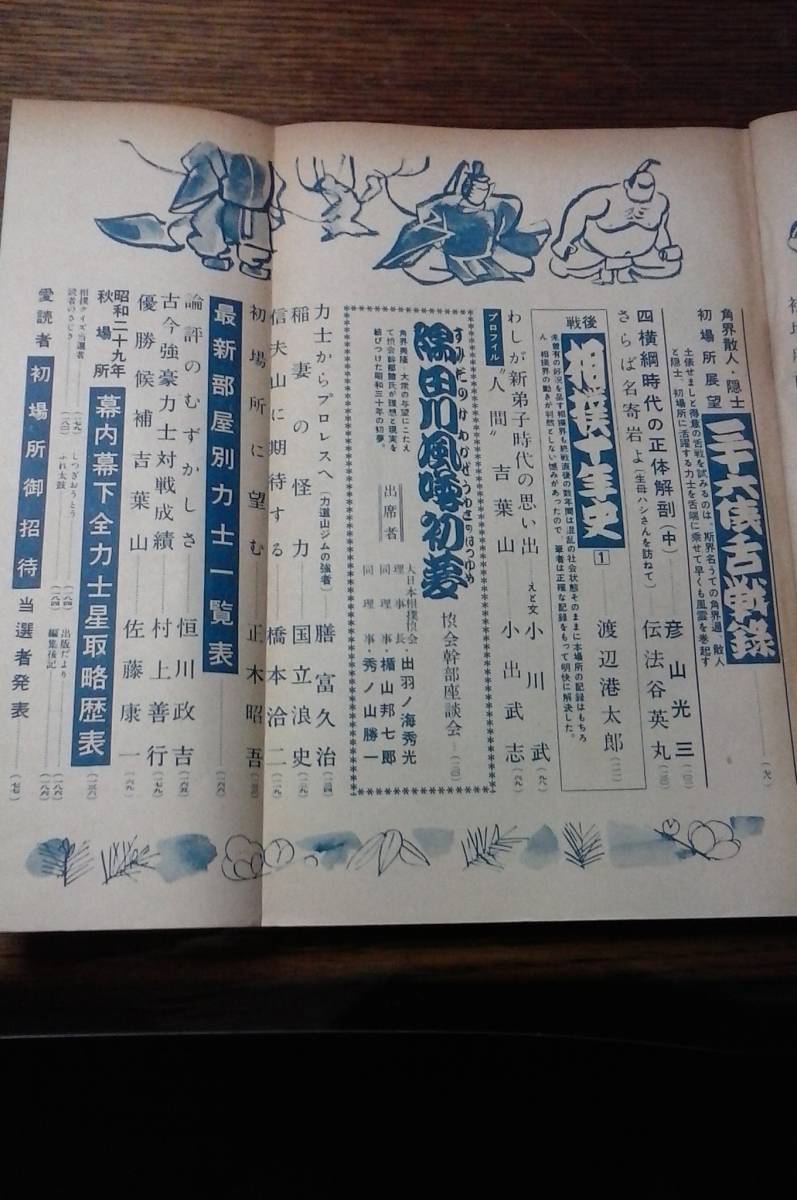 角界散人・隠士
初場所展望
二十六俵舌戦録
土俵せましと得意の舌戦を試みるのは、斯界名うての角界通、散人
と隠士、初場所に活躍する力士を舌端に乗せて早くも風雲を巻起す
四横綱時代の正体解剖(中) 彦山光三
さらば名寄岩よ(生母ハシさんを訪ねて) 伝法谷英丸
戦後
相撲十年史
1
渡辺港太郎
未曾有の好況を呈す相撲界も終戦直後の数年間は混乱の社会状態そのままに本場所の記録はもちろ
ん、相撲界の動きが判然としない憾みがあったので、筆者は正確な記録をもって明快に解決した。
わしが新弟子時代の思い出 えと文 小川武
プロフイル
"人間"吉葉山 小出武志
隅田川風嗚初夢
協会幹部座談会
角界興隆、大衆の与望にこたえ
て協会幹部諸氏が理想と現実を
結びつけた昭和三十年の初夢。
出席者
大日本相撲協会
理事長 出羽ノ海秀光
同理事・楯山邦七郎
同理事・秀ノ山勝一
力士からプロレスへ(力道山ジムの強者) 膳富久治
稲妻の怪力 国立浪史
信夫山に期待する 橋本治二
初場所に望む 正木昭吾
最新部屋別力士一覧表
論評のむずかしさ 恒川政吉
古今強豪力士対戦成績 村上善行
優勝候補吉葉山 佐藤康一
昭和二十九年
秋場所
幕内幕下全力士星取略歴表
相撲クイズ当選者
読者のさじき
しつぎおうとう
ふれ太鼓
出版だより
編集後記
愛読者
初場所御招待
当選者発表